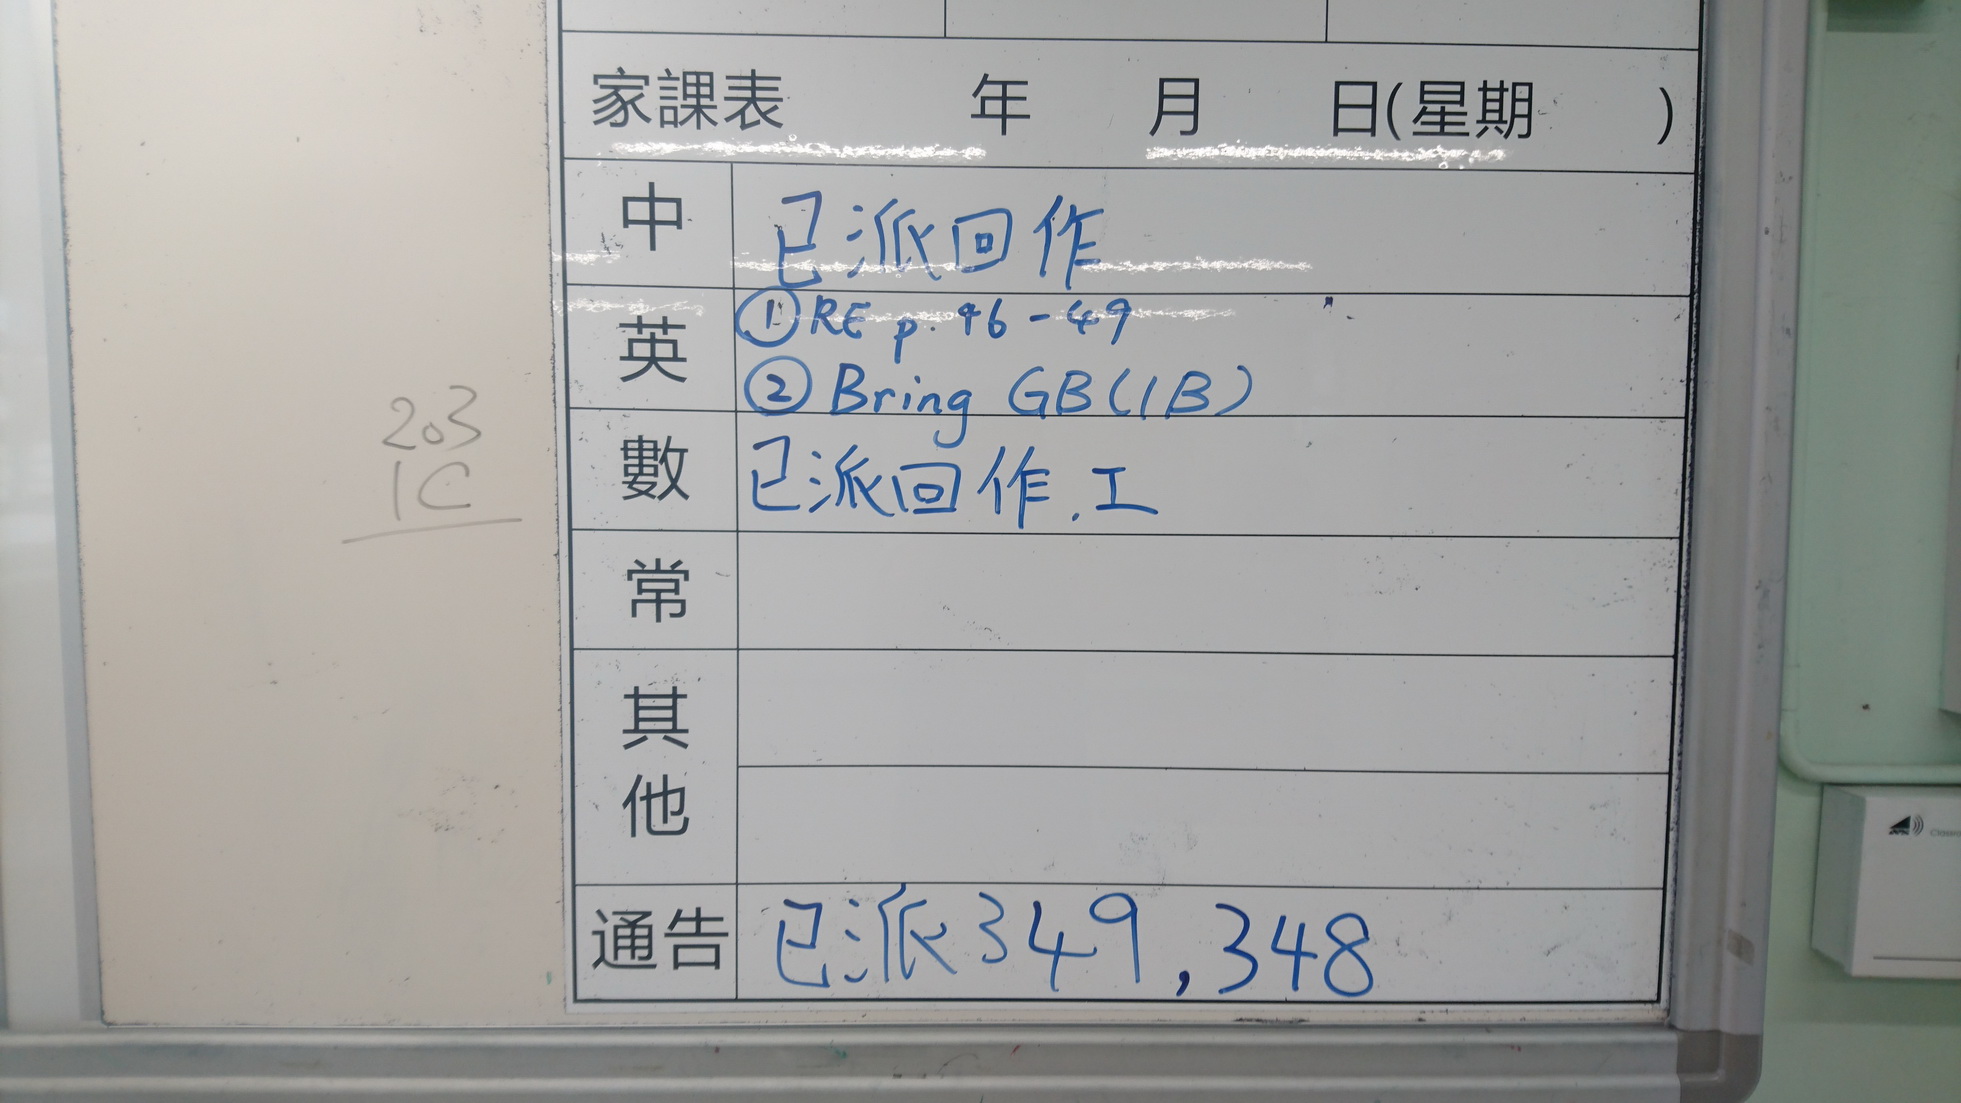 家課表 年 月 日(星期 )
中 已派回作
英 ①RE p.46-49
②Bring GB(1B)
數 已派回作.工
常
其他
通告 已派349,348
203
1C